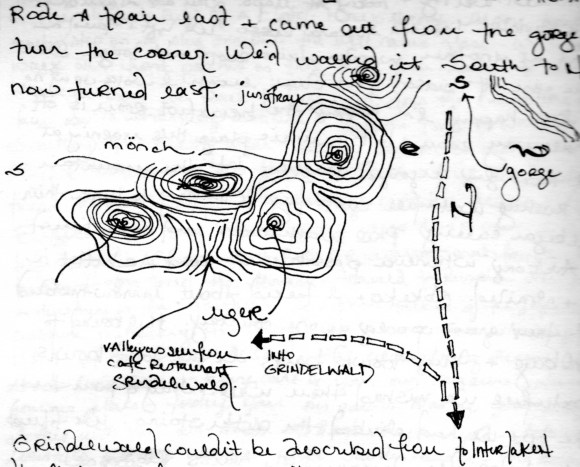 Rode A train east + came out from the gorge
turn the corner We'd walked it South to N
now turned east.
jungfrau
S
mönch
gorge
S
N
uger
valley as seen from
cafe Restaurant
Grindelwald.
INTO
GRINDELWALD
Grindelwald couldn't be described from
to Interlaken